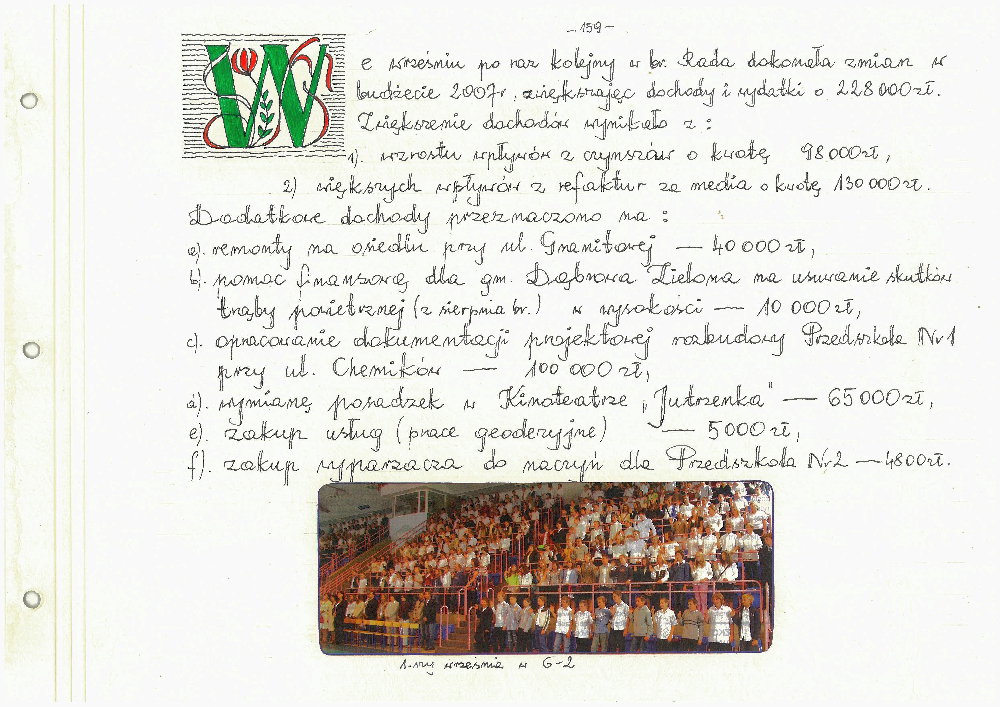 - 159 -
We wrześniu po raz kolejny w br. Rada dokonała zmian w
budżecie 2007r, zwiększając dochody i wydatki o 228 000 zł.
Zwiększenie dochodów wynikało z :
1). wzrostu wpływów z czynszów o kwotę 98 000 zł,
2) większych wpływów z refaktur za media o kwotę 130 000 zł.
Dodatkowe dochody przeznaczono na :
a). remonty na osiedlu przy ul. Granitowej — 40 000 zł,
b). pomoc finansową dla gm. Dąbrowa Zielona na usuwanie skutków
trąby powietrznej (z sierpnia br.) w wysokości — 10 000 zł,
c). opracowanie dokumentacji projektowej rozbudowy Przedszkola Nr 1
przy ul. Chemików — 100 000 zł,
d). wymianę posadzek w Kinoteatrze „Jutrzenka" — 65 000 zł,
e). zakup usług (prace geodezyjne) — 5 000 zł,
f). zakup wyparzacza do naczyń dla Przedszkola Nr 2 — 4800 zł.
1-szy września w G-2